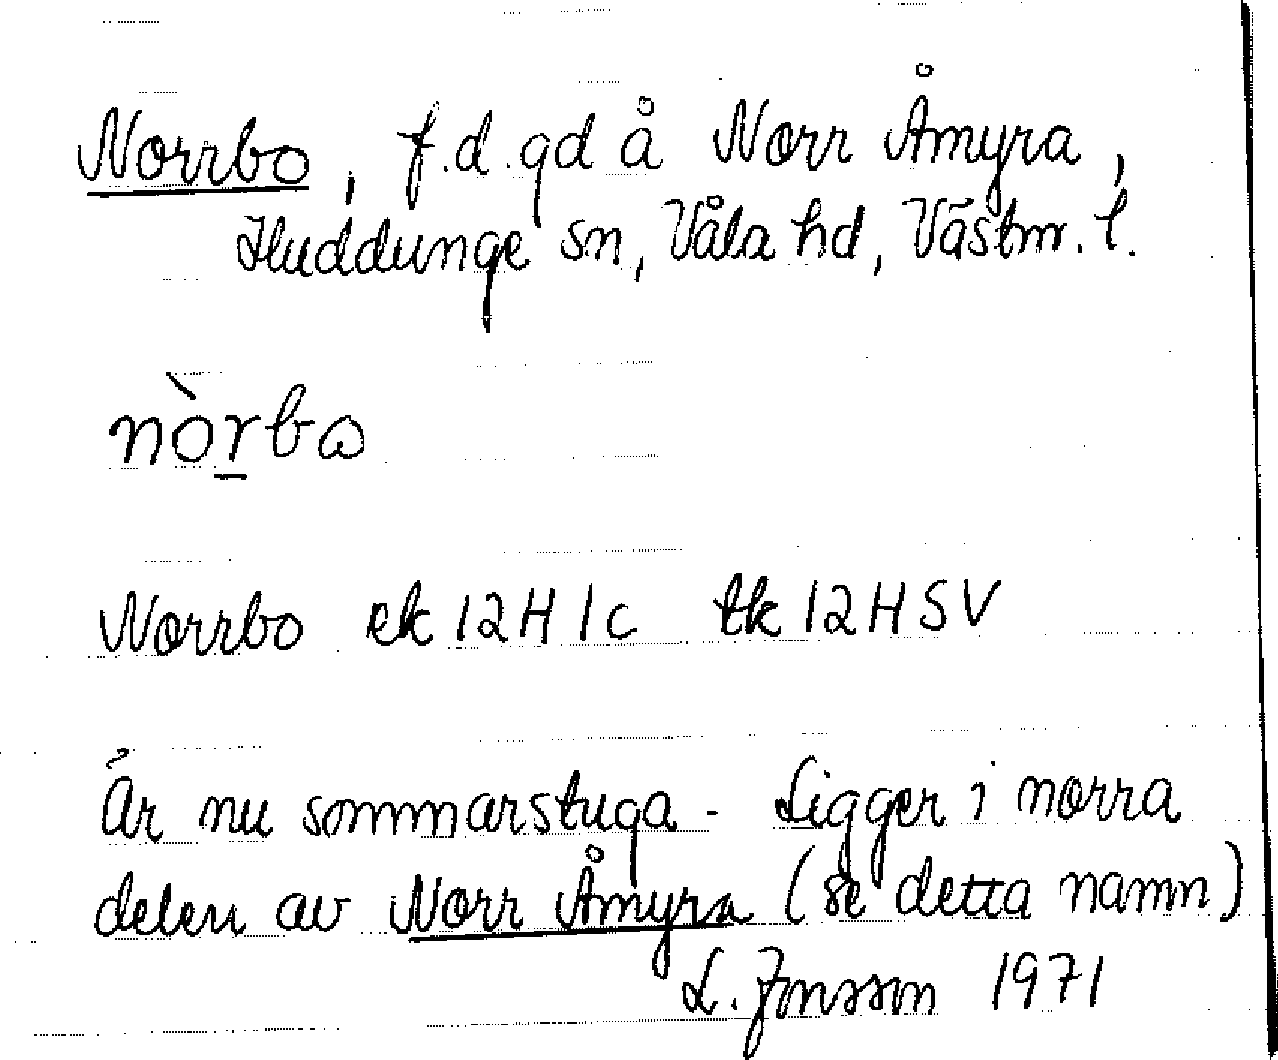 Norrbo, f.d. gd å Norr Åmyra,
Huddunge sn, Våla hd, Västm. l.
nòr̲bɷ
Norrbo ek 12H 1c tk 12H SV
Är nu sommarstuga - Ligger i norra
delen av Norr Åmyra (se detta namn)
L. Jonsson 1971